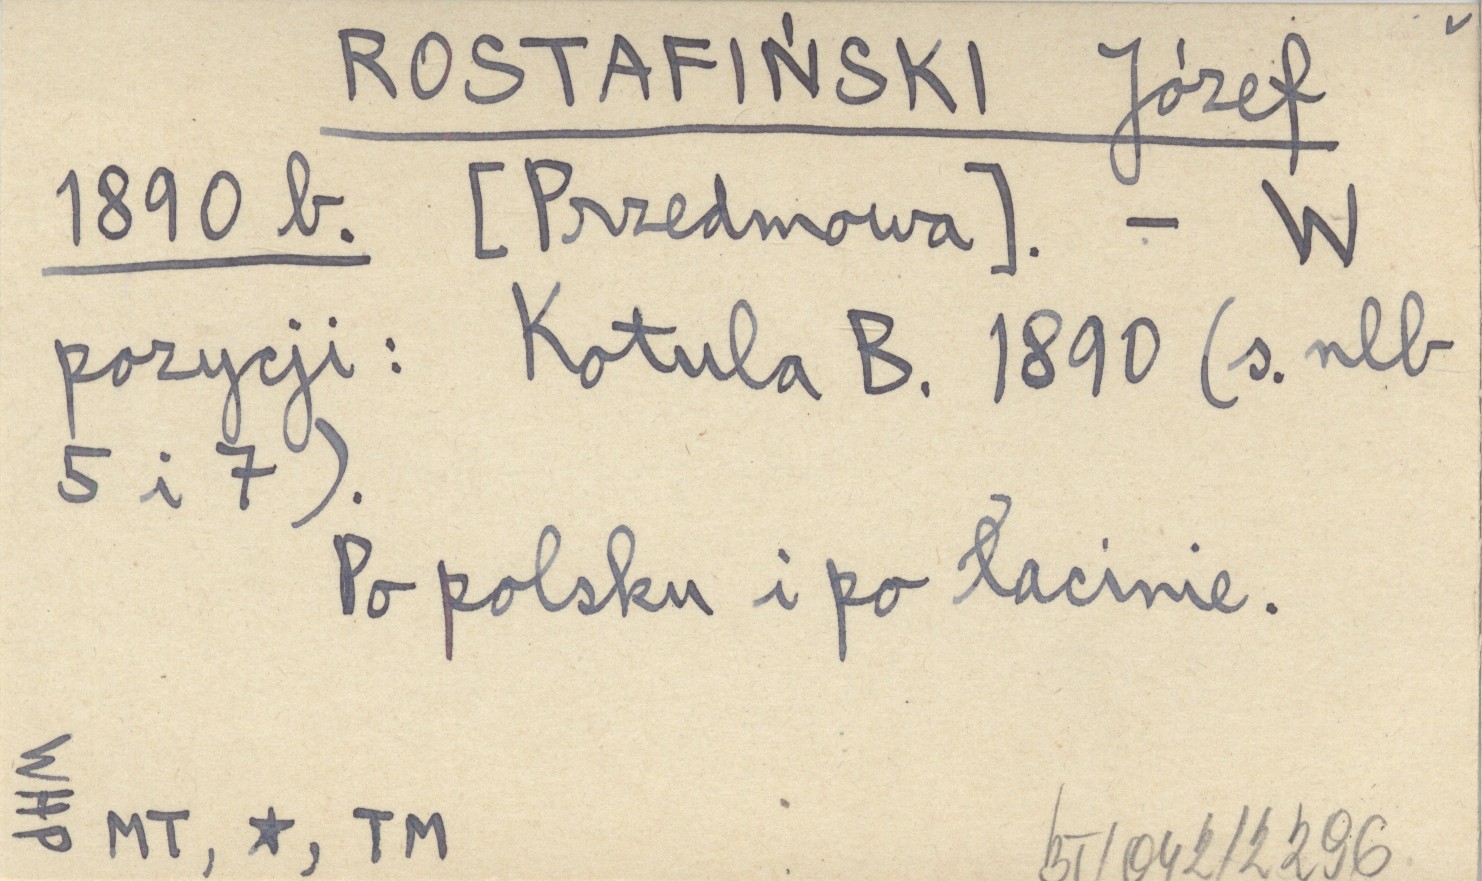 ROSTAFIŃSKI Józef
1890 b. [Przedmowa]. – W
pozycji: Kotula B. 1890 (s. nlb
5 i 7).
Po polsku i po łacinie.
WHP
MT, ★, TM
BI/042/2296